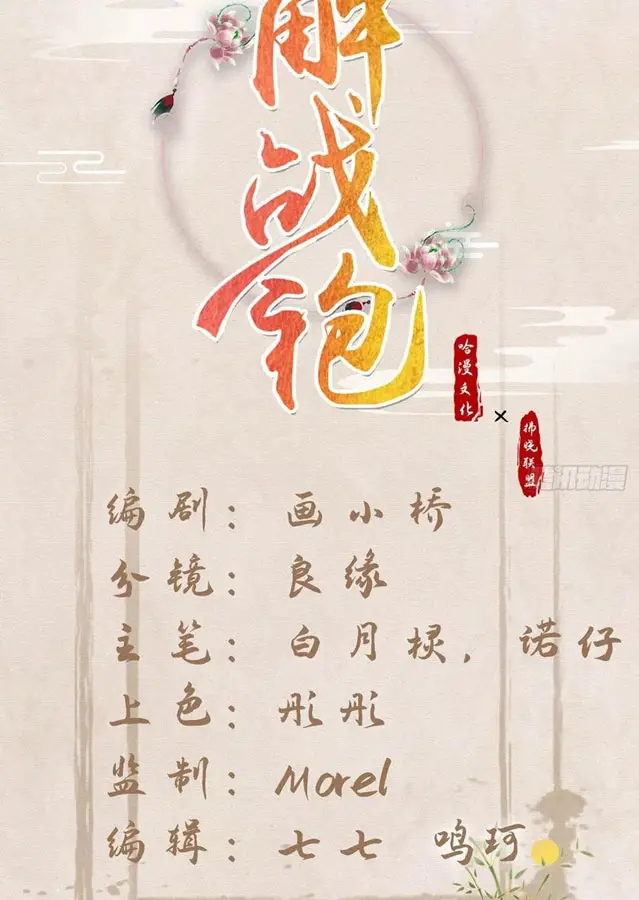 解
战
袍
哈漫文化
×
拂晓联盟
编剧：画小桥
分镜：良缘
主笔：白月棂，诺仔
上色：彤彤
监制：Morel
编辑：七七 鸣珂